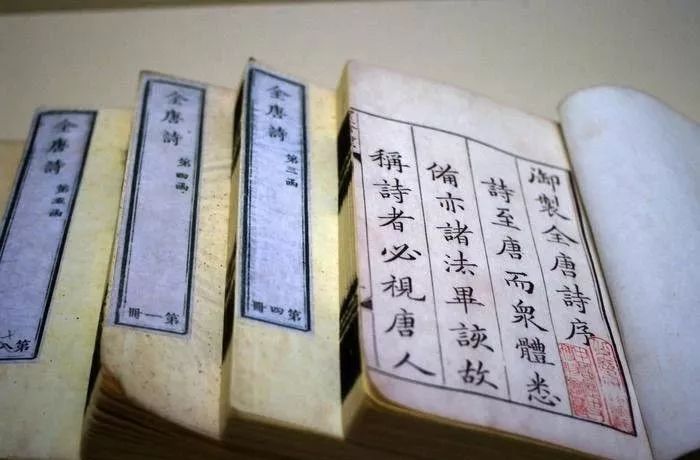 御製全唐詩序
詩至唐而衆體悉
俻亦諸法畢該故
稱詩者必視唐人
全唐詩
第三函
第四冊
全唐詩
第四函
第一冊
全唐詩
第五函
第八